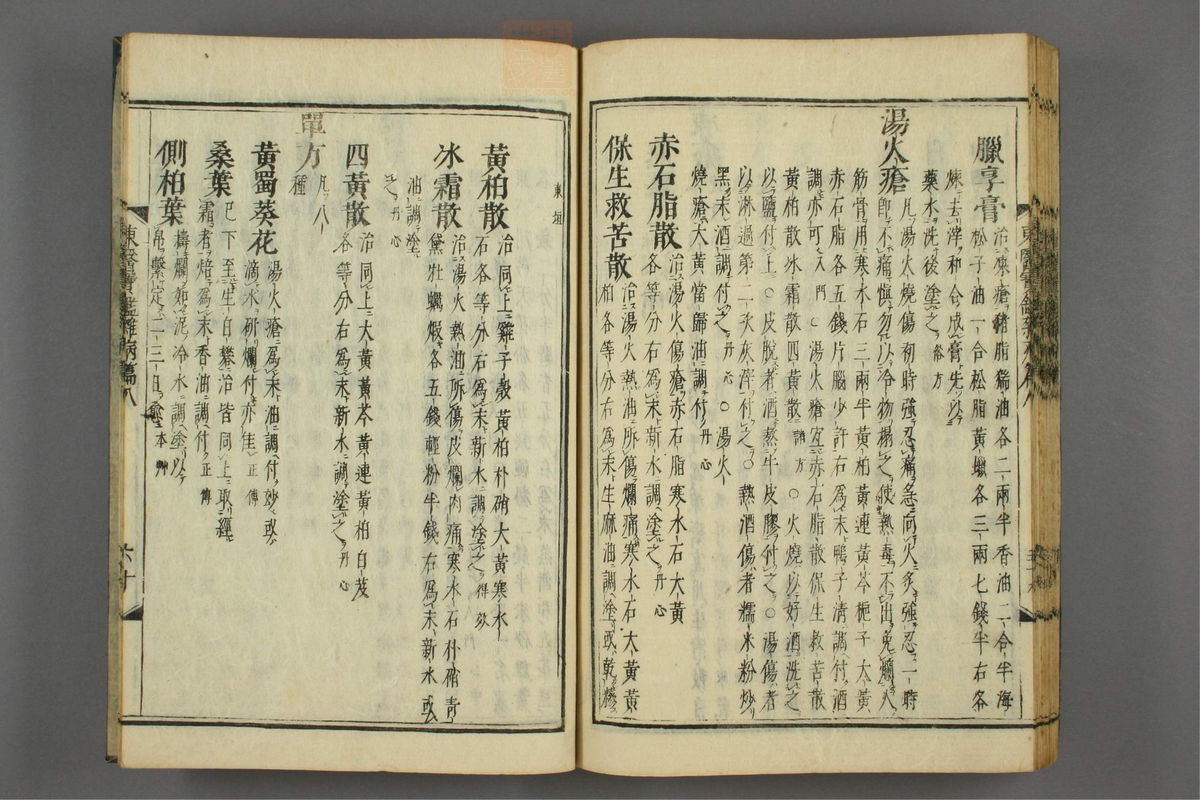 臘享膏 治凍瘡猪脂猯油各二兩半香油二合半海
松子油一合松脂黃蠟各三兩七錢半右各
煉去滓和合成膏先以
藥水洗後塗之 俗方
湯火瘡 凡湯火燒傷初時強忍痛急向火炙強忍一時
即不痛愼勿以冷物搨之使熱毒不出兔爛人
筋骨用寒水石三兩半黃柏黃連黃芩梔子大黃
赤石脂各五錢片腦少許右爲末鴨子淸調付酒
調亦可 入門 ○湯火瘡宜赤石脂散保生救苦散
黃柏散冰霜散四黃散 諸方 ○火燒以好酒洗之
以鹽付上○皮脫者酒熬牛皮膠付之○湯傷者
以淋過第二灰滓付之○熱酒傷者糯米粉炒
黑末酒調付之 丹心 ○湯火
燒瘡大黃當歸油調付 丹心
赤石脂散 治湯火傷瘡赤石脂寒水石大黃
各等分右爲末新水調塗之 丹心
保生救苦散 治湯火熱油所傷爛痛寒水石大黃黃
柏各等分右爲末生麻油調塗或乾糝
東垣
黃柏散 治同上雞子殼黃柏朴硝大黃寒水
石各等分右爲末新水調塗之 得效
冰霜散 治湯火熱油所傷皮爛肉痛寒水石朴硝靑
黛牡蠣煆各五錢輕粉半錢右爲末新水或
油調塗
之 丹心
四黃散 治同上大黃黃芩黃連黃柏白芨
各等分右爲末新水調塗之 丹心
單方 凡八
種
黃蜀葵花 湯火瘡爲末油調付妙或
滴水研爛付亦佳 正傳
桑葉 已下至生白礬治皆同上取經
霜者焙爲末香油調付 正傳
側柏葉 擣爛如泥冷水調塗以
帛繫定二三日愈 本草
東醫寶鑑雜病篇八
六十